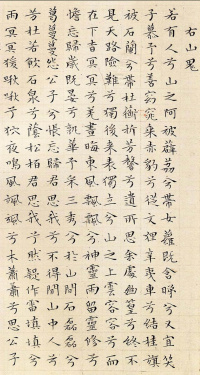 右山鬼
若有人兮山之阿被薜荔兮帶女蘿既含睇兮又宜笑
子慕予兮善窈窕乘赤豹兮從文狸辛夷車兮結桂旗
被石蘭兮帶杜衡折芳馨兮遺所思余處幽篁兮終不
見天路險難兮獨後來表獨立兮山之上雲容容兮而
在下杳冥冥兮羌晝晦東風飄飄兮神靈雨留靈修兮
憺忘歸歲既晏兮孰華予采三秀兮於山間石磊磊兮
葛蔓蔓怨公子兮悵忘歸君思我兮不得間山中人兮
芳杜若飲石泉兮蔭松柏君思我兮然疑作雷填填兮
雨冥冥猨啾啾兮狖夜鳴風颯颯兮木蕭蕭兮思公子